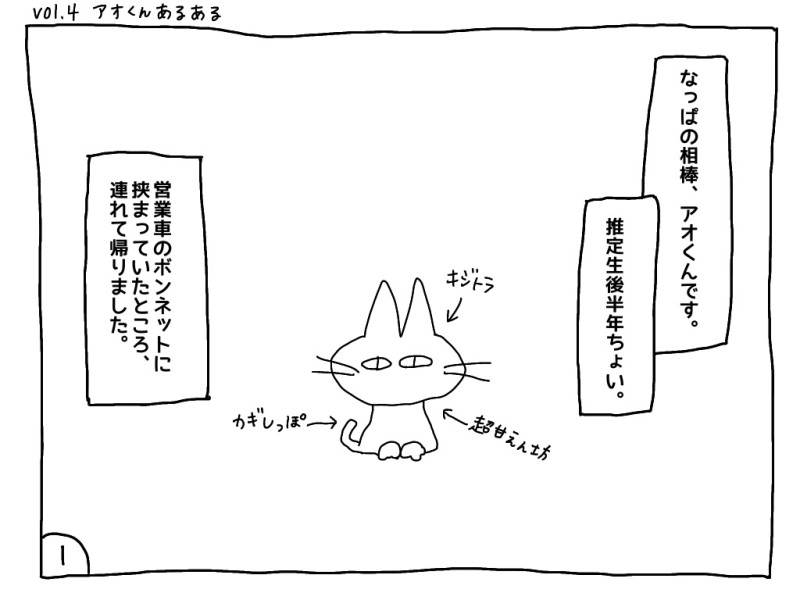 vol.4 アオくんあるある
なっぱの相棒、アオくんです。
推定生後半年ちょい。
キジトラ
超甘えん坊
カギしっぽ
営業車のボンネットに
挟まっていたところ、
連れて帰りました。
1